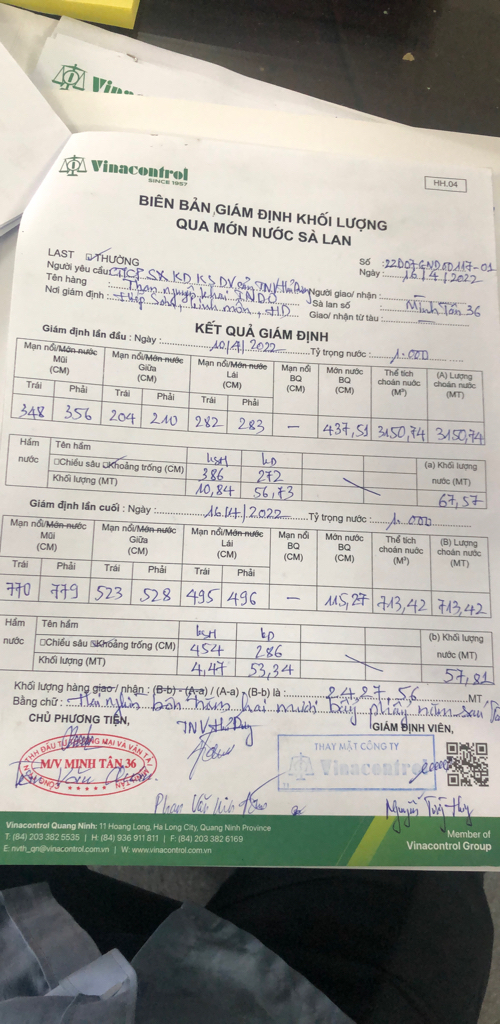 Vinacontrol
SINCE 1957
HH.04
BIÊN BẢN GIÁM ĐỊNH KHỐI LƯỢNG
QUA MỚN NƯỚC SÀ LAN
LAST ☑ THƯỜNG
Số : 22D07GND00117-01
Ngày : 16/4/2022
Người yêu cầu: CTCP SX KD KS DV cảng TNV
Tên hàng : Than nguyên khai INDO
Người giao/ nhận : —
Nơi giám định : Hiệp Sơn, Kinh môn, HD
Sà lan số : Minh Tân 36
Giao/ nhận từ tàu : —
KẾT QUẢ GIÁM ĐỊNH
Giám định lần đầu : Ngày : 10/4/2022 Tỷ trọng nước : 1.000
Mạn nổi/Mớn nước Mũi (CM) Mạn nổi/Mớn nước Giữa (CM) Mạn nổi/Mớn nước Lái (CM) Mạn nổi BQ (CM) Mớn nước BQ (CM) Thể tích choán nước (M³) (A) Lượng choán nước (MT)
Trái Phải Trái Phải Trái Phải
348 356 204 210 282 283 — 437,51 3150,74 3150,74
Hầm nước Tên hầm ksH kD (a) Khối lượng nước (MT)
☐Chiều sâu ☐Khoảng trống (CM) 386 272
Khối lượng (MT) 10,84 56,73 67,57
Giám định lần cuối : Ngày : 16/4/2022 Tỷ trọng nước : 1.000
Mạn nổi/Mớn nước Mũi (CM) Mạn nổi/Mớn nước Giữa (CM) Mạn nổi/Mớn nước Lái (CM) Mạn nổi BQ (CM) Mớn nước BQ (CM) Thể tích choán nước (M³) (B) Lượng choán nước (MT)
Trái Phải Trái Phải Trái Phải
770 779 523 528 495 496 — 115,27 713,42 713,42
Hầm nước Tên hầm ksH kD (b) Khối lượng nước (MT)
☐Chiều sâu ☐Khoảng trống (CM) 454 286
Khối lượng (MT) 4,47 53,34 57,81
Khối lượng hàng giao / nhận : (B-b) - (A-a) / (A-a) - (B-b) là : 2427,56 MT
Bằng chữ : Hai nghìn bốn trăm hai mươi bảy phẩy năm sáu
CHỦ PHƯƠNG TIỆN, GIÁM ĐỊNH VIÊN,
M/V MINH TÂN 36
THAY MẶT CÔNG TY
Vinacontrol
Nguyễn
Vinacontrol Quang Ninh: 11 Hoang Long, Ha Long City, Quang Ninh Province
T: (84) 203 382 5535 | H: (84) 936 911 811 | F: (84) 203 382 6169
E: nvth_qn@vinacontrol.com.vn | W: www.vinacontrol.com.vn
Member of
Vinacontrol Group